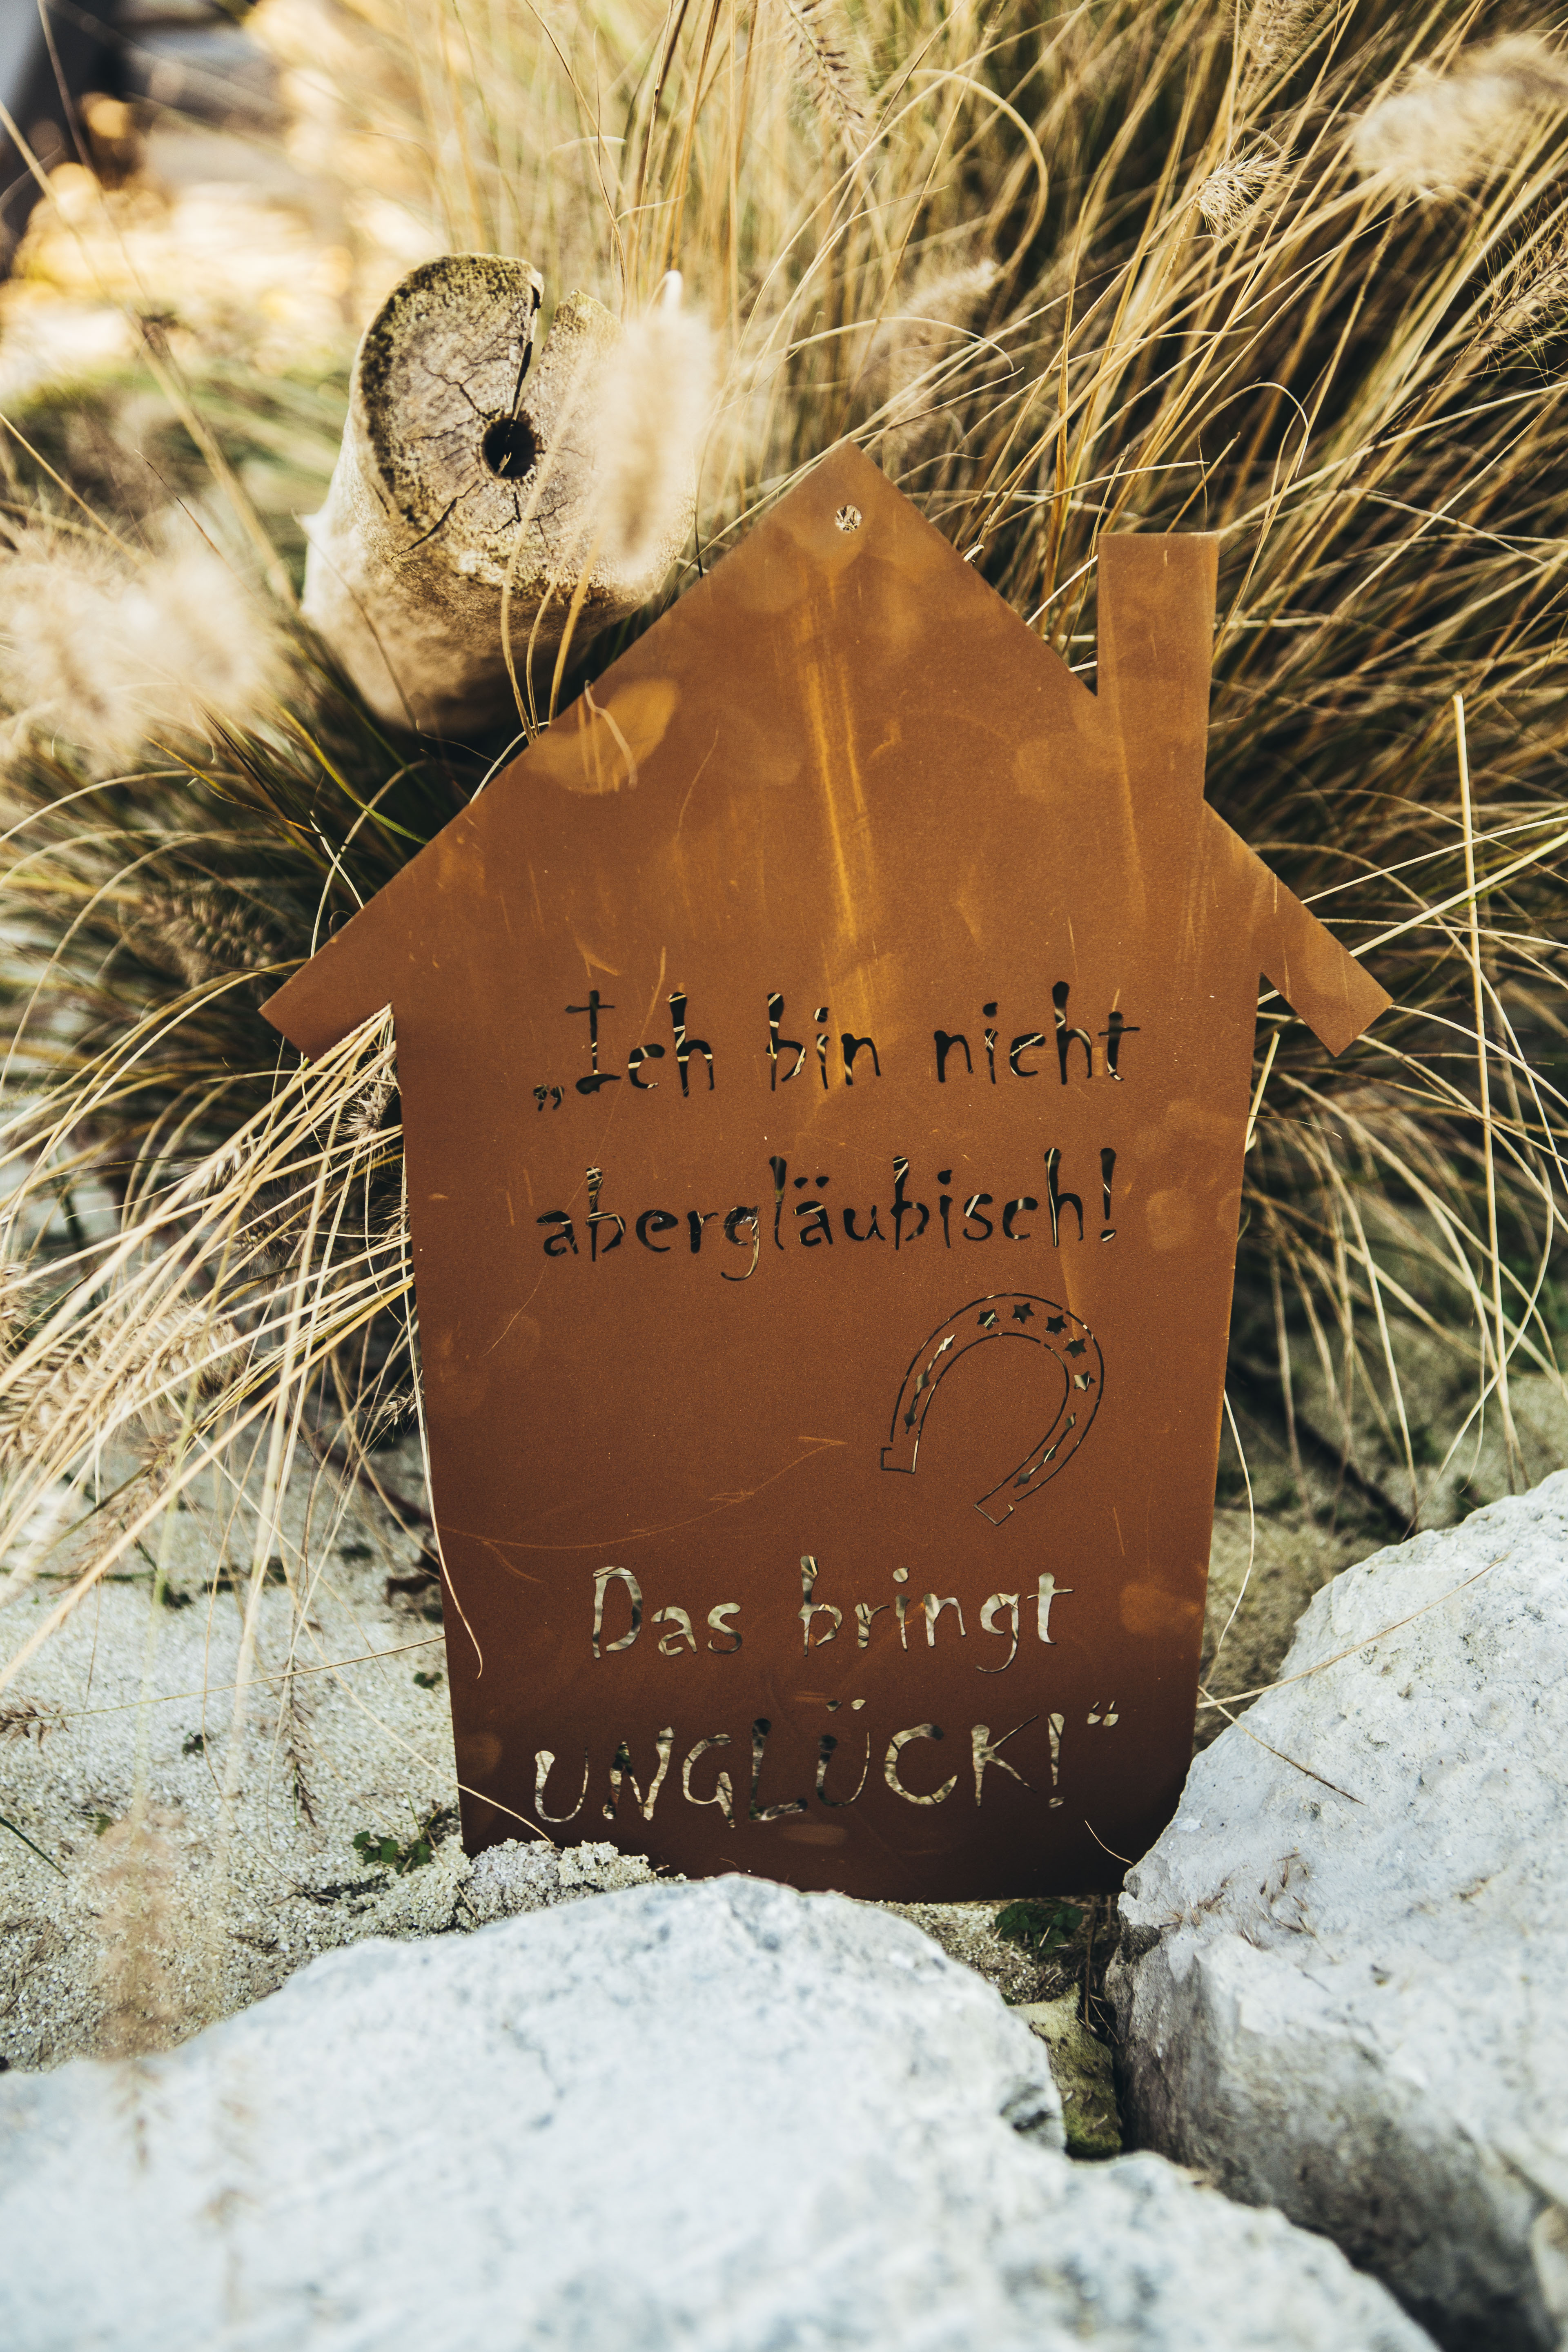 „Ich bin nicht
abergläubisch!
Das bringt
UNGLÜCK!“